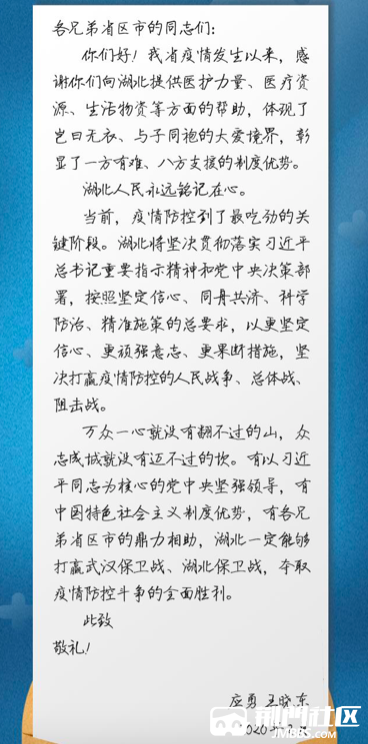 各兄弟省区市的同志们:
你们好！我省疫情发生以来，感
谢你们向湖北提供医护力量、医疗资
源、生活物资等方面的帮助，体现了
岂曰无衣、与子同袍的大爱境界，彰
显了一方有难、八方支援的制度优势。
湖北人民永远铭记在心。
当前，疫情防控到了最吃劲的关
键阶段。湖北将坚决贯彻落实习近平
总书记重要指示精神和党中央决策部
署，按照坚定信心、同舟共济、科学
防治、精准施策的总要求，以更坚定
信心、更顽强意志、更果断措施，坚
决打赢疫情防控的人民战争、总体战、
阻击战。
万众一心就没有翻不过的山，众
志成城就没有迈不过的坎。有以习近
平同志为核心的党中央坚强领导，有
中国特色社会主义制度优势，有各兄
弟省区市的鼎力相助，湖北一定能够
打赢武汉保卫战、湖北保卫战，夺取
疫情防控斗争的全面胜利。
此致
敬礼！
应勇 王晓东
2020
荆门社区
JM88S.COM